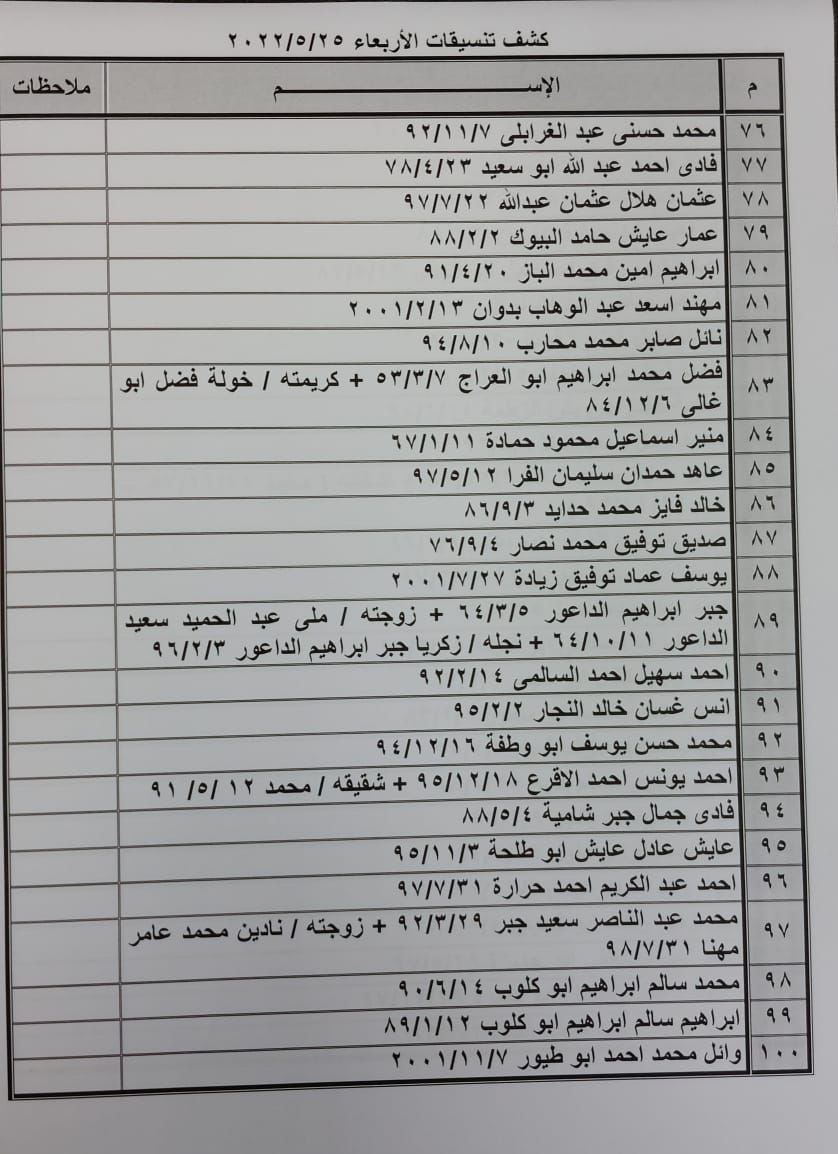 كشف تنسيقات الأربعاء ٢٠٢٢/٥/٢٥
م الإســـــــــــــــــــــــم ملاحظات
٧٦ محمد حسنى عبد الغرابلى ٩٢/١١/٧
٧٧ فادى احمد عبد الله ابو سعيد ٧٨/٤/٢٣
٧٨ عثمان هلال عثمان عبدالله ٩٧/٧/٢٢
٧٩ عمار عايش حامد البيوك ٨٨/٢/٢
٨٠ ابراهيم امين محمد الباز ٩١/٤/٢٠
٨١ مهند اسعد عبد الوهاب بدوان ٢٠٠١/٢/١٣
٨٢ نائل صابر محمد محارب ٩٤/٨/١٠
٨٣ فضل محمد ابراهيم ابو العراج ٥٣/٣/٧ + كريمته / خولة فضل ابو
غالى ٨٤/١٢/٦
٨٤ منير اسماعيل محمود حمادة ٦٧/١/١١
٨٥ عاهد حمدان سليمان الفرا ٩٧/٥/١٢
٨٦ خالد فايز محمد حدايد ٨٦/٩/٣
٨٧ صديق توفيق محمد نصار ٧٦/٩/٤
٨٨ يوسف عماد توفيق زيادة ٢٠٠١/٧/٢٧
٨٩ جبر ابراهيم الداعور ٦٤/٣/٥ + زوجته / ملى عبد الحميد سعيد
الداعور ٦٤/١٠/١١ + نجله / زكريا جبر ابراهيم الداعور ٩٦/٢/٣
٩٠ احمد سهيل احمد السالمى ٩٢/٢/١٤
٩١ انس غسان خالد النجار ٩٥/٢/٢
٩٢ محمد حسن يوسف ابو وطفة ٩٤/١٢/١٦
٩٣ احمد يونس احمد الاقرع ٩٥/١٢/١٨ + شقيقه / محمد ١٢ /٥/ ٩١
٩٤ فادى جمال جبر شامية ٨٨/٥/٤
٩٥ عايش عادل عايش ابو طلحة ٩٥/١١/٣
٩٦ احمد عبد الكريم احمد حرارة ٩٧/٧/٣١
٩٧ محمد عبد الناصر سعيد جبر ٩٢/٣/٢٩ + زوجته / نادين محمد عامر
مهنا ٩٨/٧/٣١
٩٨ محمد سالم ابراهيم ابو كلوب ٩٠/٦/١٤
٩٩ ابراهيم سالم ابراهيم ابو كلوب ٨٩/١/١٢
١٠٠ وائل محمد احمد ابو طيور ٢٠٠١/١١/٧